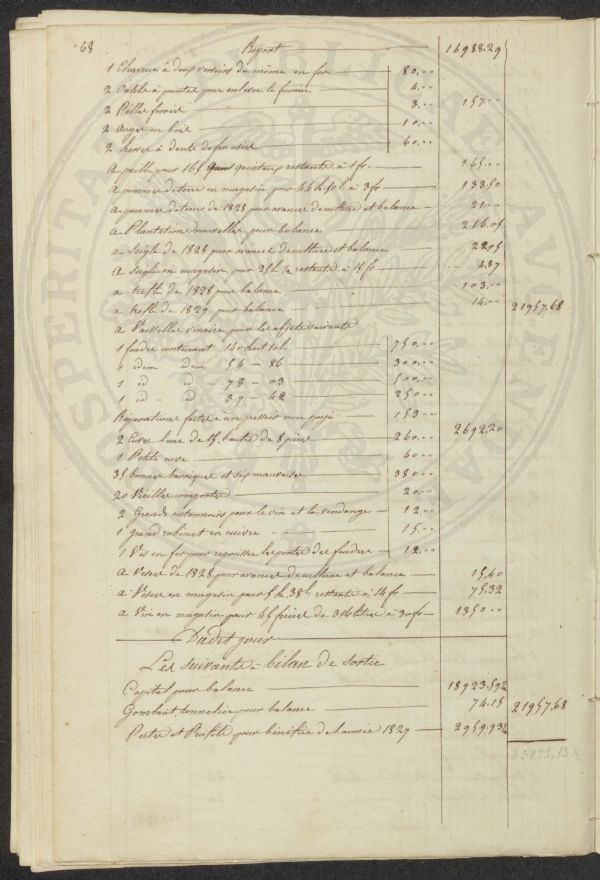 68 Report 16988.29
1 Charrue à deux versoirs du même en fer 80.
2 Outils à pointes pour enlever le fumier 4.
2 Pelles ferrées 3. 157.
2 Auges en bois 10.
2 herses à dents de fer usées 60.
A paille pour 165 quintaux restants à 1 fr 165.
A pommes de terre en magasin pour 44 h. 50 l à 3 fr 133.50
A pommes de terre de 1828 pour avances de culture et balance 21.
A Plantations nouvelles pour balance 216.05
A Seigle de 1828 pour avances de culture et balance 2205
A Seigle en magasin pour 25 h ½ restants à 15 fr 4.37
A trèfle de 1828 pour balance 103.
A trèfle de 1829 pour balance 14. 21957.68
A Vaisselle vinaire pour les objets suivants
1 foudre contenant 140 hect 10 l 750.
1 idem idem 54 - 86 300.
1 id id - 78 - 03 500.
1 id - id 39 - 42 250.
Réparations faites à un pressoir non payé 153
2 Cuves l'une de 15 l'autre de 8 pièces 260. 2692.20
1 Petite cuve 40
35 bonnes barriques et six mauvaises 380.
20 Vieilles comportes 20.
2 Grands entonnoirs pour le vin et la vendange 12.
1 grand robinet en cuivre 15.
1 Vis en fer pour repousser les portes des foudres 12.
A Vesces de 1828 pour avances de culture et balance 15.40
A Vesces en magasin pour 5 h. 38 l. restants à 14 fr 75.32
A Vin en magasin pour 45 pièces de 316 litres à 30 fr 1350
Dudit jour
Les suivants à bilan de sortie
Capital pour balance 18923.59½
Gombaut, tonnelier pour balance 74.15 21957.68
Pertes et Profits pour bénéfice de l'année 1827 2959.93½